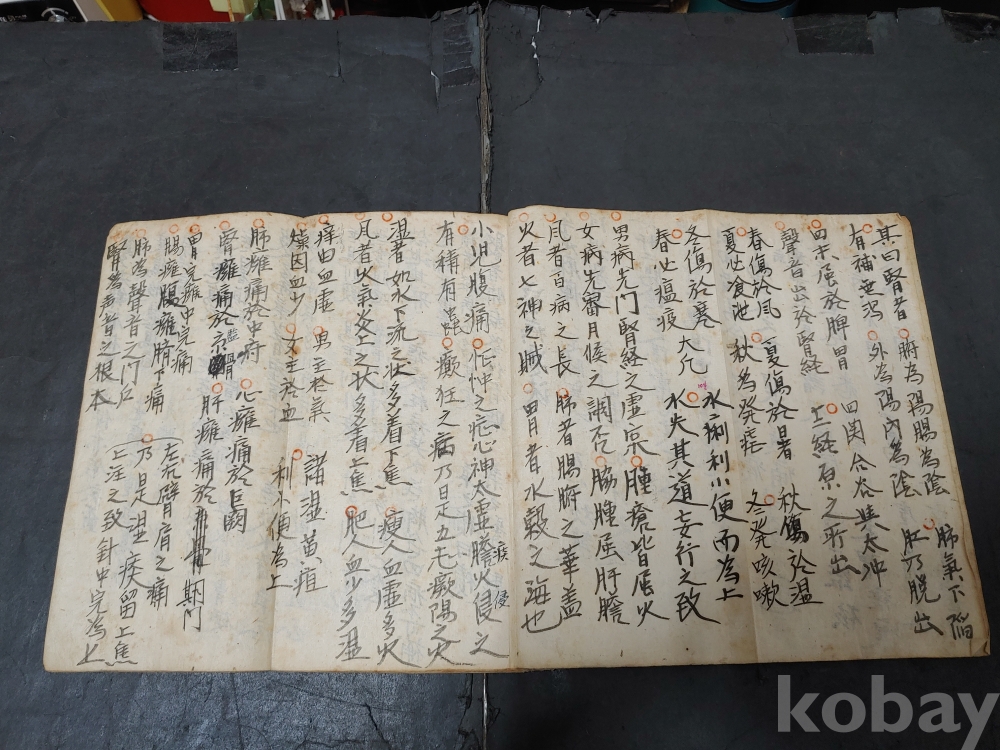 其曰腎者 ○腑為陽臟為陰 ○肺氣下陷
○有補無瀉 ○外為陽內為陰 肛乃脫出
○四末屬於脾胃 四関合谷與太冲
聲音出於腎経 ○十二経原之所出
○春傷於風 ○夏傷於暑 ○秋傷於濕
夏必飧泄 秋為発瘧 冬発咳嗽
冬傷於寒 水痢利小便而為上
○春必瘟疫 大凡 ○水失其道妄行之致
男病先門腎経之虛宗 ○腫瘡皆屬火
○女病先審月候之調否 ○脇腫屈肝膽
○風者百病之長 ○肺者臟腑之華盖
○火者七神之賊 ○胃者水穀之海也
○小児腹痛 ○怔忡之症心神太虛膽火侵之
痰 侵
有積有蟲 ○癲狂之病乃是五志厥陽之火
○湿者如水下流之状多着下焦 ○瘦人血虛多火
○風者火氣炎上之状多着上焦 ○肥人血少多湿
○痒由血虛 ○男主於氣 ○諸湿黄疸
○燥因血少 ○女主於血 利小便為上
○肺癰痛於中府 ○心癰痛於巨闕
○腎癰痛於 ○肝癰痛於 期門
○胃完癰中完痛
○腸癰腹癰臍下痛 (左右臂肩之痛
○肺為聲音之门户 ○乃是湿痰留上焦
○腎為声音之根本 (上注之致針中完為上
kobay